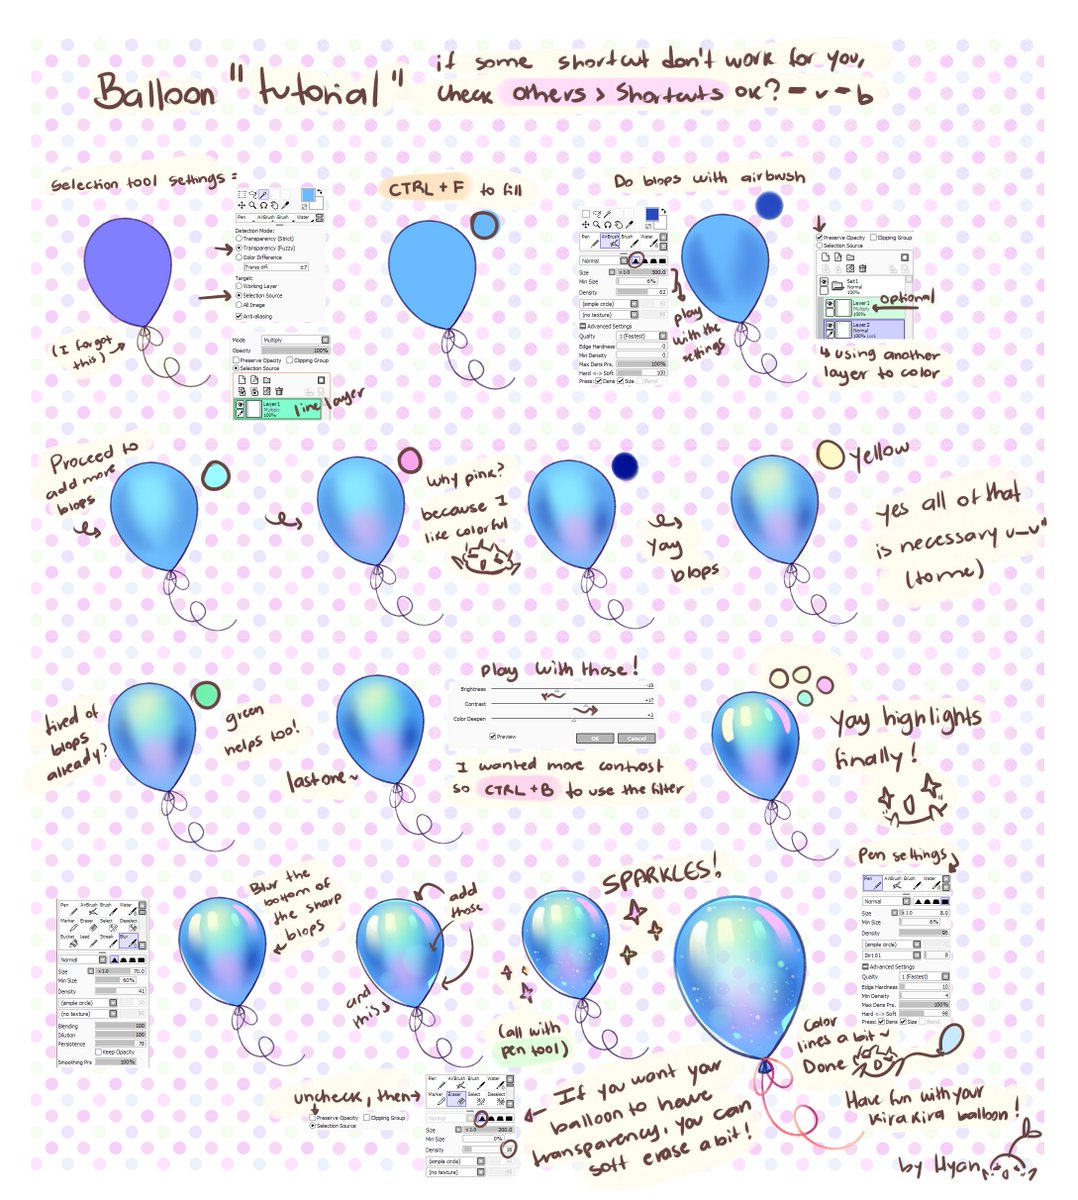 Balloon "tutorial"
if some shortcut don't work for you,
check others > shortcuts ok? - v - b
Selection tool settings =
Pen AirBrush Brush Water
Detection Mode:
Transparency (Strict)
Transparency (Fuzzy)
Color Difference
Transp diff. ±7
Target:
Working Layer
Selection Source
All Image
Anti-aliasing
(I forgot
this)
Mode Multiply
Opacity 100%
Preserve Opacity Clipping Group
Selection Source
Layer1
Multiply
100%
line layer
CTRL + F to fill
Do blops with airbrush
Pen AirBrush Brush Water
Normal
Size x1.0 300.0
Min Size 6%
Density 62
(simple circle)
(no texture)
Advanced Settings
Quality 1 (Fastest)
Edge Hardness 0
Min Density 0
Max Dens Prs. 100%
Hard <-> Soft 100
Press: Dens Size Blend
play
with the
settings
Preserve Opacity Clipping Group
Selection Source
Set1
Normal
100%
Layer1
Multiply
100%
optional
Layer2
Normal
100% Lock
↳ using another
layer to color
Proceed to
add more
blops
Why pink?
because I
like colorful
Yay
blops
yellow
yes all of that
is necessary u_u"
(to me)
tired of
blops
already?
green
helps too!
last one ~
play with those!
Brightness -15
Contrast +17
Color Deepen +2
Preview OK Cancel
I wanted more contrast
so CTRL + B to use the filter
Yay highlights
finally!
Pen AirBrush Brush Water
Marker Eraser Select Deselect
Bucket Lead Streak Blur
Normal
Size x1.0 70.0
Min Size 60%
Density 41
(simple circle)
(no texture)
Blending 100
Dilution 100
Persistence 70
Keep Opacity
Smoothing Prs 100%
Blur the
bottom of
the sharp
blops
add
those
and
this
SPARKLES!
(all with
pen tool)
Pen settings
Pen AirBrush Brush Water
Normal
Size x1.0 8.0
Min Size 6%
Density 95
(simple circle)
Dirt 01 8
Advanced Settings
Quality 1 (Fastest)
Edge Hardness 10
Min Density 4
Max Dens Prs. 100%
Hard <-> Soft 98
Press: Dens Size Blend
Color
lines a bit ~
Done
Have fun with your
kira kira balloon!
uncheck, then →
Preserve Opacity Clipping Group
Selection Source
Pen AirBrush Brush Water
Marker Eraser Select Deselect
Normal
Size x1.0 200.0
Min Size 0%
Density 16
(simple circle)
(no texture)
If you want your
balloon to have
transparency, you can
soft erase a bit!
by Hyan